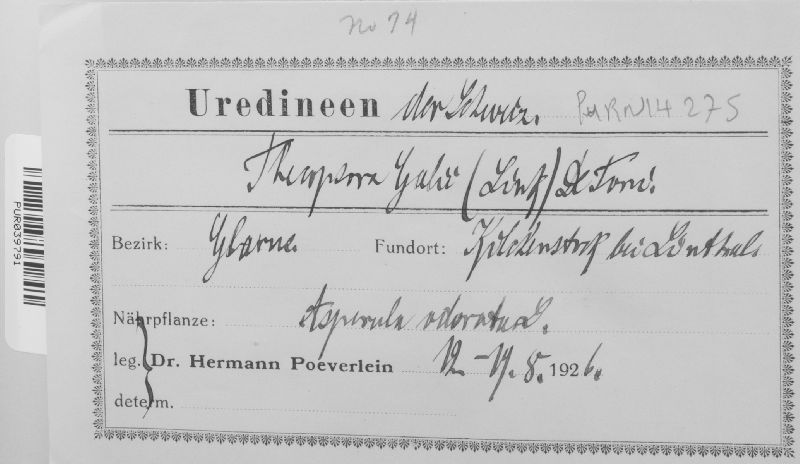 No 74
Uredineen der Schweiz. PUR N14275
Thecopsora Galii (Link) De Toni.
Bezirk: Glarus. Fundort: Kilchenstock bei Linthal.
Nährpflanze: Asperula odorata L.
leg. Dr. Hermann Poeverlein 12.-19. 8. 1926.
determ.
PUR039791